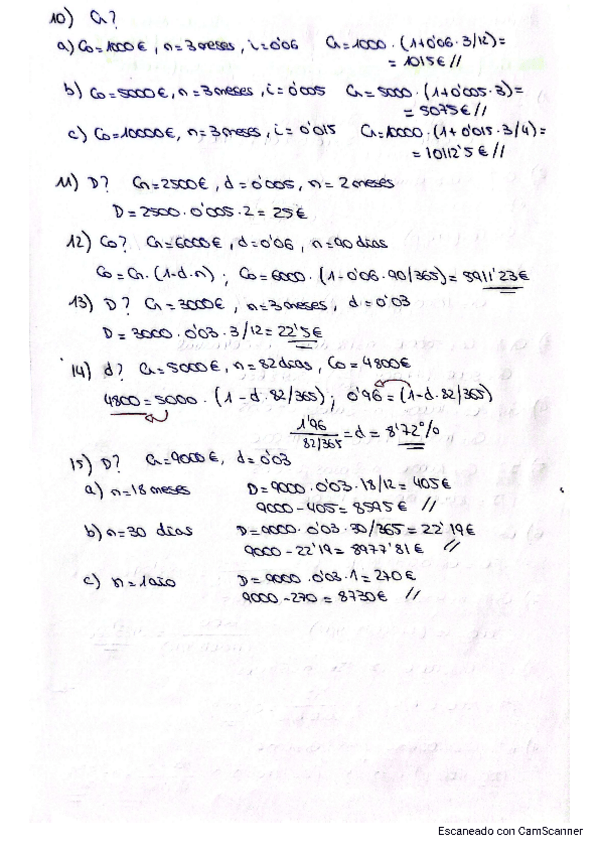 10) Cn?
a) Co=1000€, n=3 meses, i=0'06 Cn=1000·(1+0'06·3/12)=
= 1015€//
b) Co=5000€, n=3 meses, i=0'005 Cn=5000·(1+0'005·3)=
= 5075€//
c) Co=10000€, n=3 meses, i=0'015 Cn=10000·(1+0'015·3/4)=
= 10112'5€//
11) D? Cn=2500€, d=0'005, n=2 meses
D=2500·0'005·2=25€
12) Co? Cn=6000€, d=0'06, n=90 dias
Co=Cn·(1-d·n); Co=6000·(1-0'06·90/365)=5911'23€
13) D? Cn=3000€, n=3 meses, d=0'03
D=3000·0'03·3/12=22'5€
14) d? Cn=5000€, n=82 dias, Co=4800€
4800=5000·(1-d·82/365); 0'96=(1-d·82/365)
1'96
82/365 =d= 8'72%
15) D? Cn=9000€, d=0'03
a) n=18 meses D=9000·0'03·18/12=405€
9000-405=8595€ //
b) n=30 dias D=9000·0'03·30/365=22'19€
9000-22'19=8977'81€ //
c) n=1 año D=9000·0'03·1=270€
9000-270=8730€ //
Escaneado con CamScanner